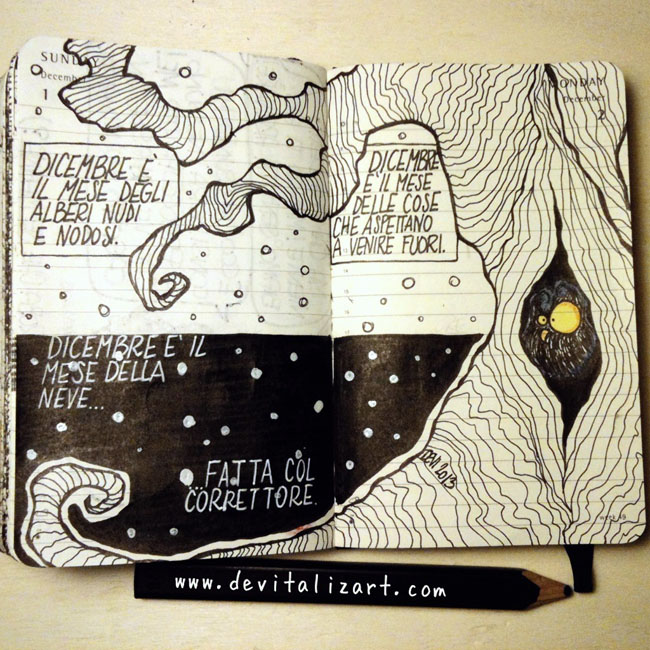 SUNDAY
December
1
DICEMBRE E'
IL MESE DEGLI
ALBERI NUDI
E NODOSI.
DICEMBRE E' IL
MESE DELLA
NEVE...
...FATTA COL
CORRETTORE.
MONDAY
December
2
DICEMBRE
E' IL MESE
DELLE COSE
CHE ASPETTANO
A VENIRE FUORI.
DEVI 2013
www.devitalizart.com